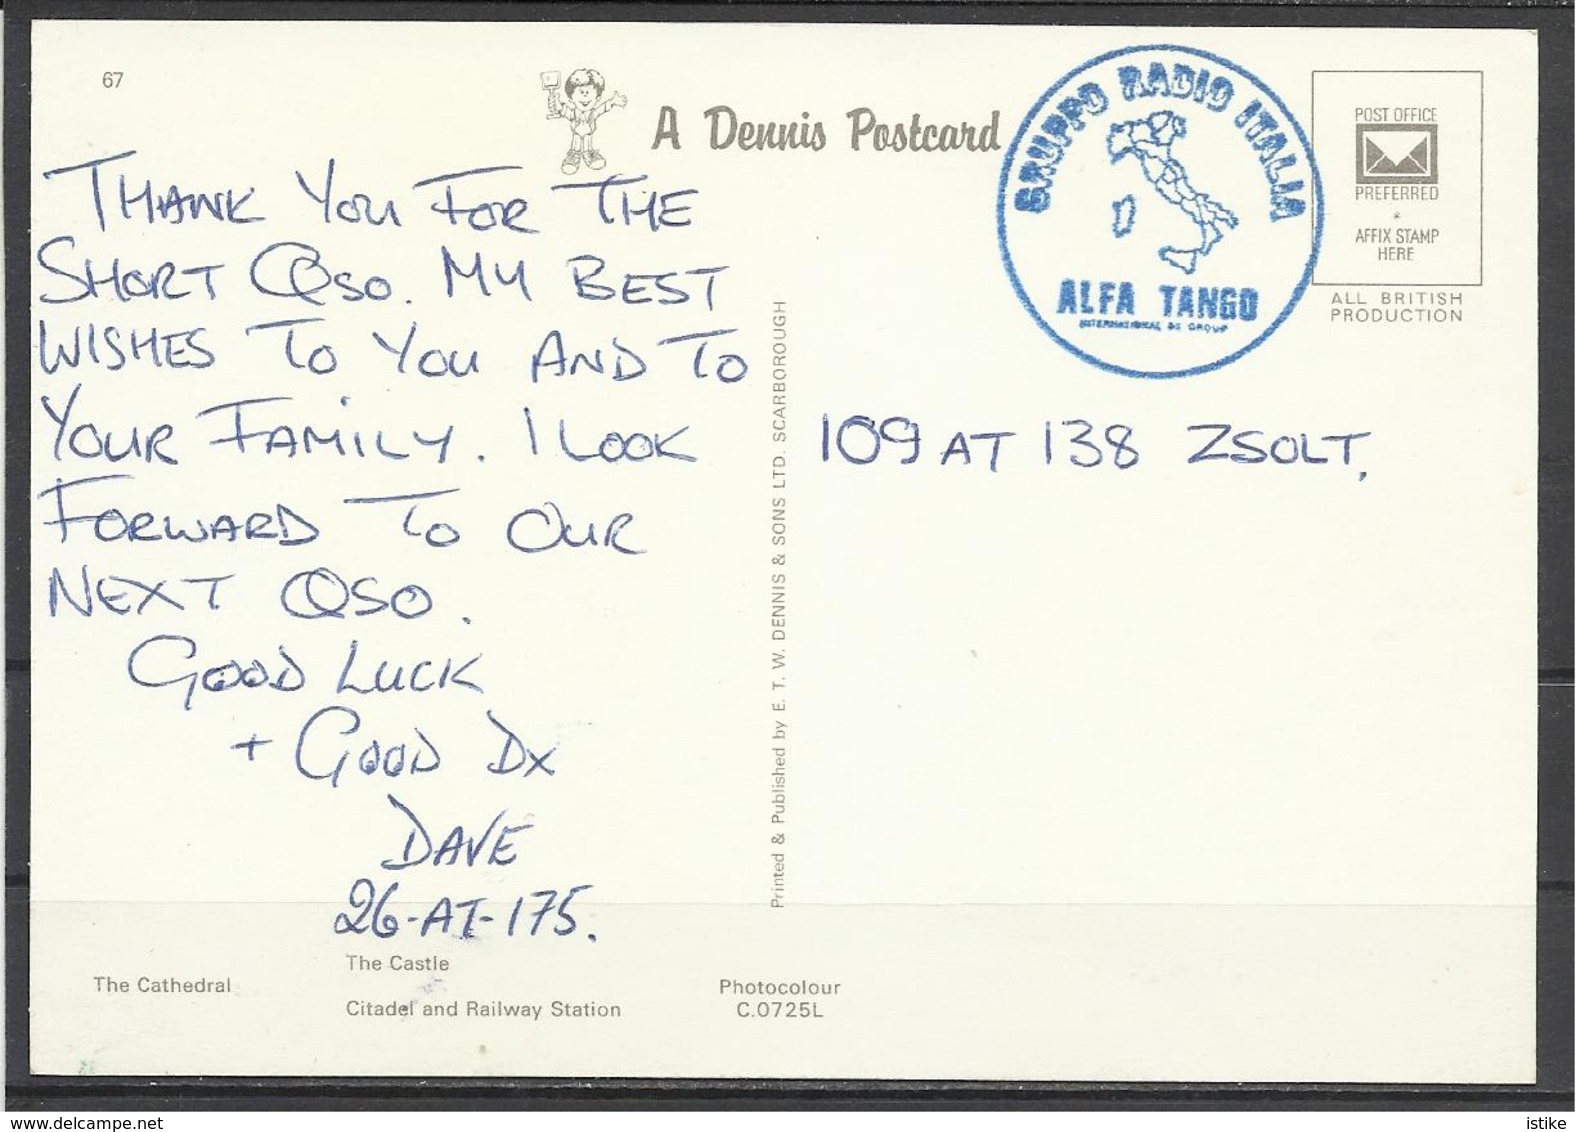 67
A Dennis Postcard
GRUPPO RADIO ITALIA
ALFA TANGO
INTERNATIONAL DX GROUP
POST OFFICE
PREFERRED
*
AFFIX STAMP
HERE
ALL BRITISH
PRODUCTION
THANK YOU FOR THE
SHORT QSO. MY BEST
WISHES TO YOU AND TO
YOUR FAMILY. I LOOK
FORWARD TO OUR
NEXT QSO.
GOOD LUCK
+ GOOD DX
DAVE
26-AT-175.
Printed & Published by E. T. W. DENNIS & SONS LTD. SCARBOROUGH
109 AT 138 ZSOLT,
The Cathedral
The Castle
Citadel and Railway Station
Photocolour
C.0725L
delcampe.net
istike